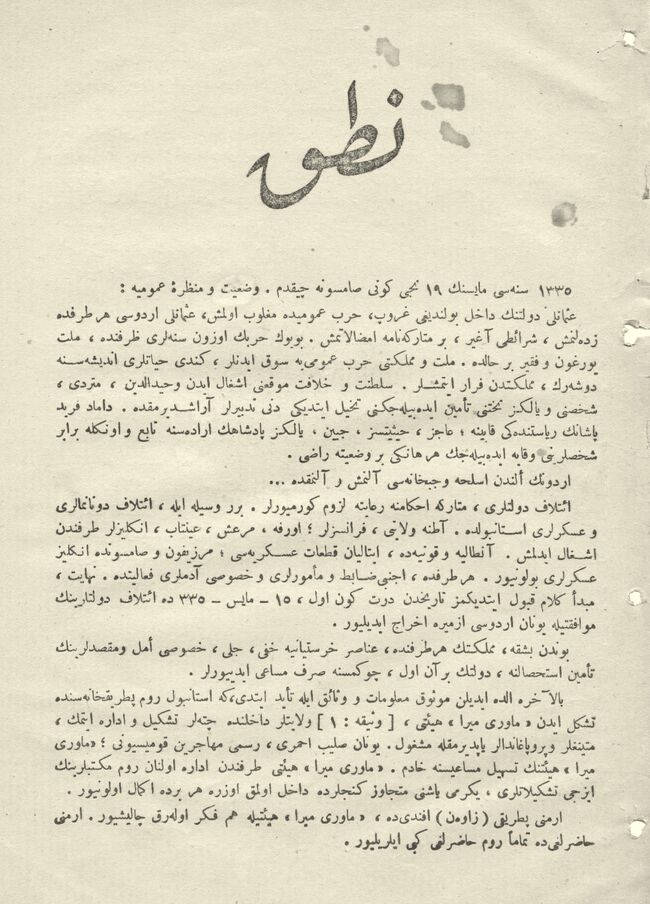 نطق
١٣٣٥ سنه‌سی مایسنك ١٩ نجی كونی صامسونه چیقدم . وضعیت و منظرهٔ عمومیه :
عثمانلی دولتنك داخل بولندیغی غروب، حرب عمومیده مغلوب اولمش، عثمانلی اردوسی هر طرفده
زده‌لنمش ، شرائطی آغیر ، بر متاركه‌نامه امضالاتمش . بویوك حربك اوزون سنه‌لری ظرفنده ، ملت
یورغون و فقیر بر حالده . ملت و مملكتی حرب عمومی‌یه سوق ایدنلر ، كندی حیاتلری اندیشه‌سنه
دوشه‌رك ، مملكتدن فرار ایتمشلر . سلطنت و خلافت موقعنی اشغال ایدن وحیدالدین ، متردی ،
شخصنی و یالكز تختنی تأمین ایده‌بیله‌جكنی تخیل ایتدیكی دنی تدبیرلر آراشدیرمقده . داماد فرید
پاشانك ریاستنده‌كی قابینه ؛ عاجز ، حیثیتسز ، جبین ، یالكز پادشاهك اراده‌سنه تابع و اونكله برابر
شخصلرینی وقایه ایده‌بیله‌جك هر هانكی بر وضعیته راضی .
اردونك ألندن اسلحه و جبخانه‌سی آلنمش و آلنمقده ...
ائتلاف دولتلری ، متاركه احكامنه رعایته لزوم كورمیورلر . برر وسیله ایله ، ائتلاف دونانمالری
و عسكرلری استانبولده . آطنه ولایتی ، فرانسزلر ؛ اورفه ، مرعش ، عینتاب ، انكلیزلر طرفندن
اشغال ایدلمش . آنطالیه و قونیه‌ده ، ایتالیان قطعات عسكریه‌سی ؛ مرزیفون و صامسونده انكلیز
عسكرلری بولونیور . هر طرفده ، اجنبی ضابط و مأمورلری و خصوصی آدملری فعالیتده . نهایت ،
مبدأ كلام قبول ایتدیكمز تاریخدن درت كون اول ، ١٥ – مایس – ٣٣٥ ده ائتلاف دولتلرینك
موافقتیله یونان اردوسی ازمیره اخراج ایدیلیور .
بوندن بشقه ، مملكتك هر طرفنده ، عناصر خرستیانیه خفی ، جلی ، خصوصی أمل ومقصدلرینك
تأمین استحصالنه ، دولتك بر آن اول ، چوكمسنه صرف مساعی ایدییورلر .
بالآخره الده ایدیلن موثوق معلومات و وثائق ایله تأید ایتدی،كه استانبول روم پطریقخانه‌سنده
تشكل ایدن « ماوری میرا » هیئتی ، [ وثیقه : ١ ] ولایتلر داخلنده چته‌لر تشكیل و اداره ایتمك ،
متینغلر و پروپاغاندالر یاپدیرمقله مشغول . یونان صلیب احمری ، رسمی مهاجرین قومیسیونی ؛ «ماوری
میرا » هیئتنك تسهیل مساعیسنه خادم . « ماوری میرا » هیئتی طرفندن اداره اولنان روم مكتبلرینك
ایزجی تشكیلاتلری ، یكرمی یاشنی متجاوز كنجلرده داخل اولمق اوزره هر یرده اكمال اولونیور .
ارمنی پطریقی ( زاوه‌ن ) افندی‌ده ، « ماوری میرا» هیئتیله هم فكر اوله‌رق چالیشیور . ارمنی
حاضرلغی‌ده تماماً روم حاضرلغی كبی ایلریلیور .